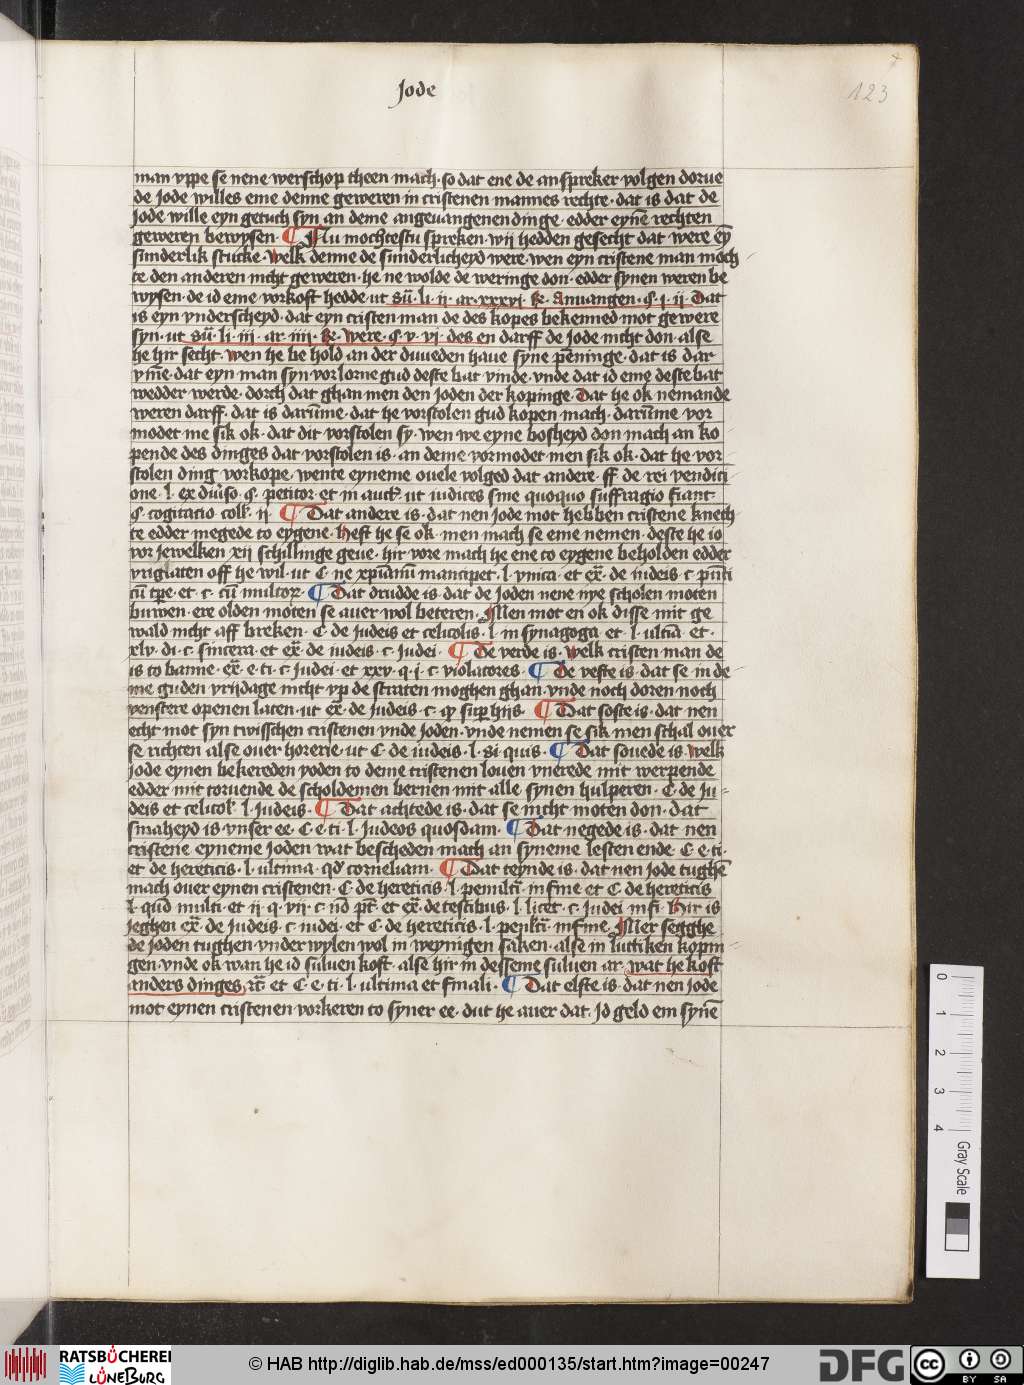 Jode
123
man vppe se nene werschop theen mach· so dat ene de anspreker volgen dorue
de Jode willes eme denne geweren in cristenen mannes rechte· dat is dat de
Jode wille eyn getuch syn an deme angeuangenen dinge· edder eynẽ rechten
geweren bewysen· ¶ Nu mochtestu spreken· wij hedden gesecht dat were eỹ
sunderlik stucke· Welk denne de sunderlicheyd were· wen eyn cristene man moch
te den anderen nicht geweren· he ne wolde de weringe don· edder synen weren be
wysen· de id eme vorkoft hedde· ut sũ· li· ij· ar· xxxvi· Anuangen· ꝯ· j· ij· Dat
is eyn vnderscheyd· dat eyn cristen man de des kopes bekenned mot gewere
syn· ut sũ· li· iij· ar· iiij· Were· ꝯ· v· vj· des en darff de Jode nicht don· alse
he hir secht· Wen he be hold an der duueden haue syne pẽninge· dat is dar
vm̃e· dat eyn man syn vorlorne gud deste bat vinde· vnde dat id eme deste bat
wedder werde· dorch dat ghan men den Joden der kopinge· Dat he ok nemande
weren darff· dat is darũme· dat he vorstolen gud kopen mach· darũme vor
modet me sik ok· dat dit vorstolen sy· wen we eyne bosheyd don mach an ko
pende des dinges dat vorstolen is· an deme vormodet men sik ok· dat he vor
stolen ding vorkope· wente eyneme ouele volged dat andere· ff de rei vendici
one· l· ex diuiso· ꝯ· petitor· et in auct̃· ut iudices sine quoquo suffragio fiant
ꝯ· cogitatio coll̃· ij· ¶ Dat andere is· dat nen Jode mot hebben cristene knech
te edder megede to eygene· Heft he se ok· men mach se eme nemen· deste he io
vor Jewelken xij schillinge geue· hir vore mach he ene to eygene beholden edder
vriglaten off he wil· ut C· ne xp̃ianũ mancipet· l· vnica· et ex̃· de iudeis· c· p̃nti
cũ tp̃e· et· c· cũ multorꝝ· ¶ Dat drudde is· dat de Joden nene nye scholen moten
buwen· ere olden moten se auer wol beteren· Men mot en ok disse mit ge
wald nicht aff breken· C· de Judeis et celicolis· l· in synagoga et· l· ulcĩa· et·
xlv· di· c· sincera· et ex̃· de iudeis· c· Judei· ¶ De verde is· welk cristen man de
is to banne· ex̃· e· ti· c· Judei· et xxv· q· j· c· violatores· ¶ De vefte is· dat se in de
me guden vrijdage nicht vp̃ de straten moghen ghan· vnde noch doren noch
venstere openen laten· ut ex̃· de Judeis· c· ꝙ sup̃ hijs· ¶ Dat soste is· dat nen
echt mot syn twisschen cristenen vnde Joden· vnde nemen se sik men schal ouer
se richten alse ouer horerie· ut C· de iudeis· l· si quis· ¶ Dat souede is· Welk
Jode eynen bekereden yoden to deme cristenen louen vnerede mit werpende
edder mit toruende de scholdemen bernen mit alle synen hulperen· C· de Ju
deis et celicol̃· l· Judeis· ¶ Dat achtede is· dat se nicht moten don· dat
smaheyd is vnser ee· C· e· ti· l· Judeos quosdam· ¶ Dat negede is· dat nen
cristene eyneme Joden wat bescheden mach an syneme lesten ende· C· e· ti·
et de hereticis· l· ultima· qd̃ corneliam· ¶ Dat teynde is· dat nen Jode tughẽ
mach ouer eynen cristenen· C· de hereticis· l· penultĩ· in fine et C· de hereticis
l· quõ multi· et ij· q· vij· c· nõ pt̃· et ex̃· de testibus· l· licet· c· Judei· infi· Hir is
Jeghen ex̃· de Judeis· c· iudei· et C· de hereticis· l· penl̃tĩ· in fine· Mer segghe
de Joden tughen vnder wylen wol in weynigen saken· alse in luttiken kopin
gen· vnde ok wan he id suluen koft· alse hir in desseme suluen ar· wat he koft
anders dinges· ac̃· et C· e· ti· l· ultima et finali· ¶ Dat elfte is· dat nen Jode
mot eynen cristenen vorkeren to syner ee· dut he auer dat· Jd geld em synẽ
0 1 2 3 4
Gray Scale
RATSBÜCHEREI LÜNEBURG
© HAB http://diglib.hab.de/mss/ed000135/start.htm?image=00247
DFG
cc
BY SA